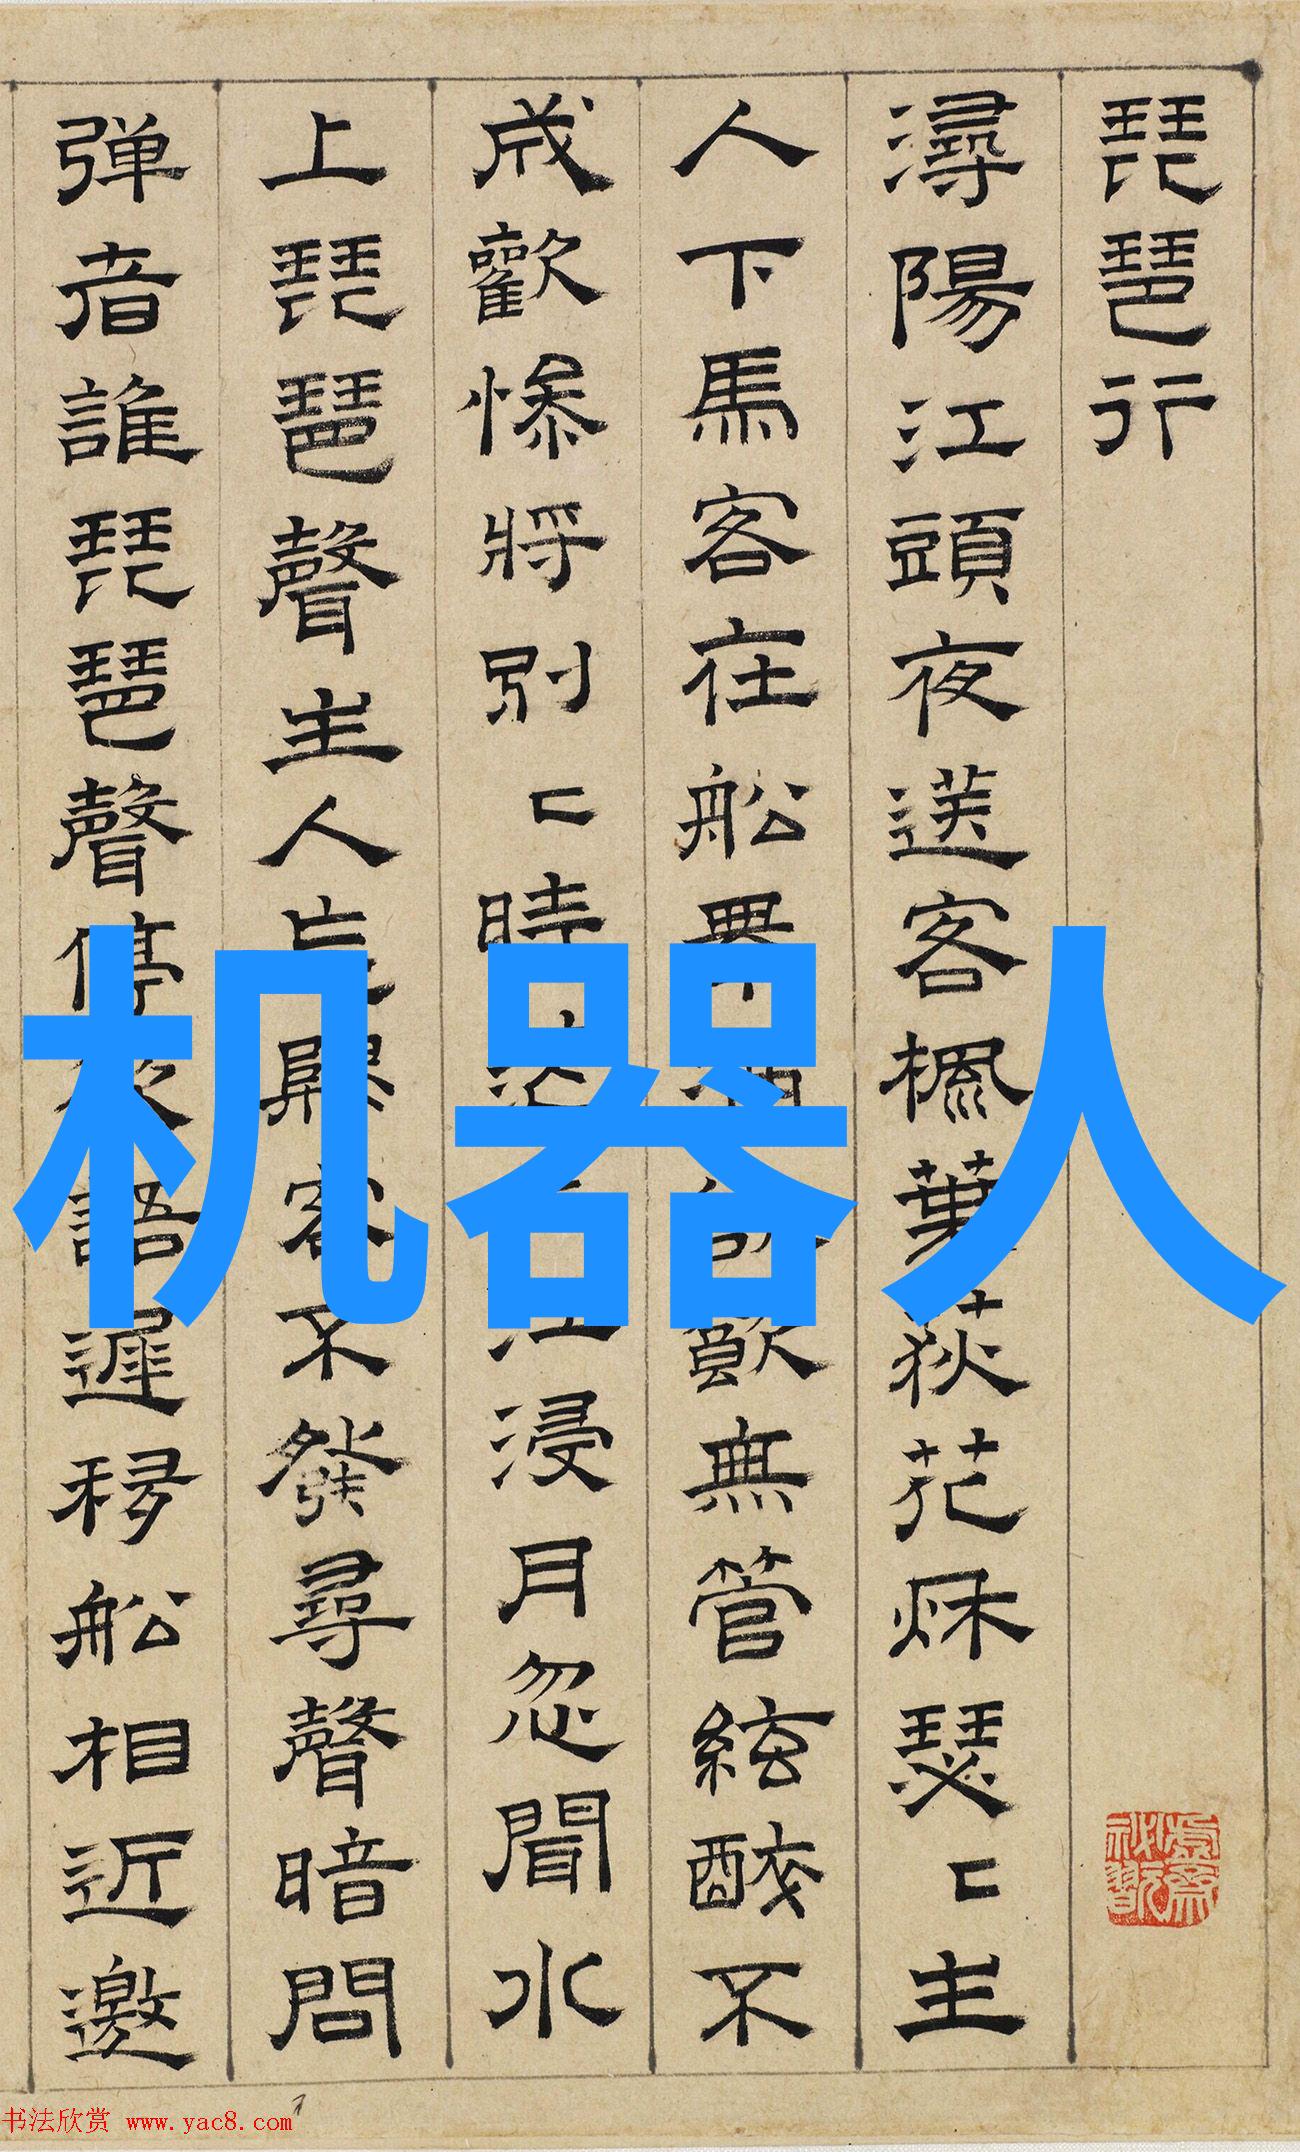 琵琶行
潯陽江頭夜送客楓葉荻花秌瑟〻主
人下馬客在船飲無管絃醉不
成歡慘將別〻時江浸月忽聞水
上琵琶聲主人忘歸客不發尋聲暗問
弹者誰琵琶聲停欲語遲移船相近邀
机器人
书法欣赏 www.yac8.com